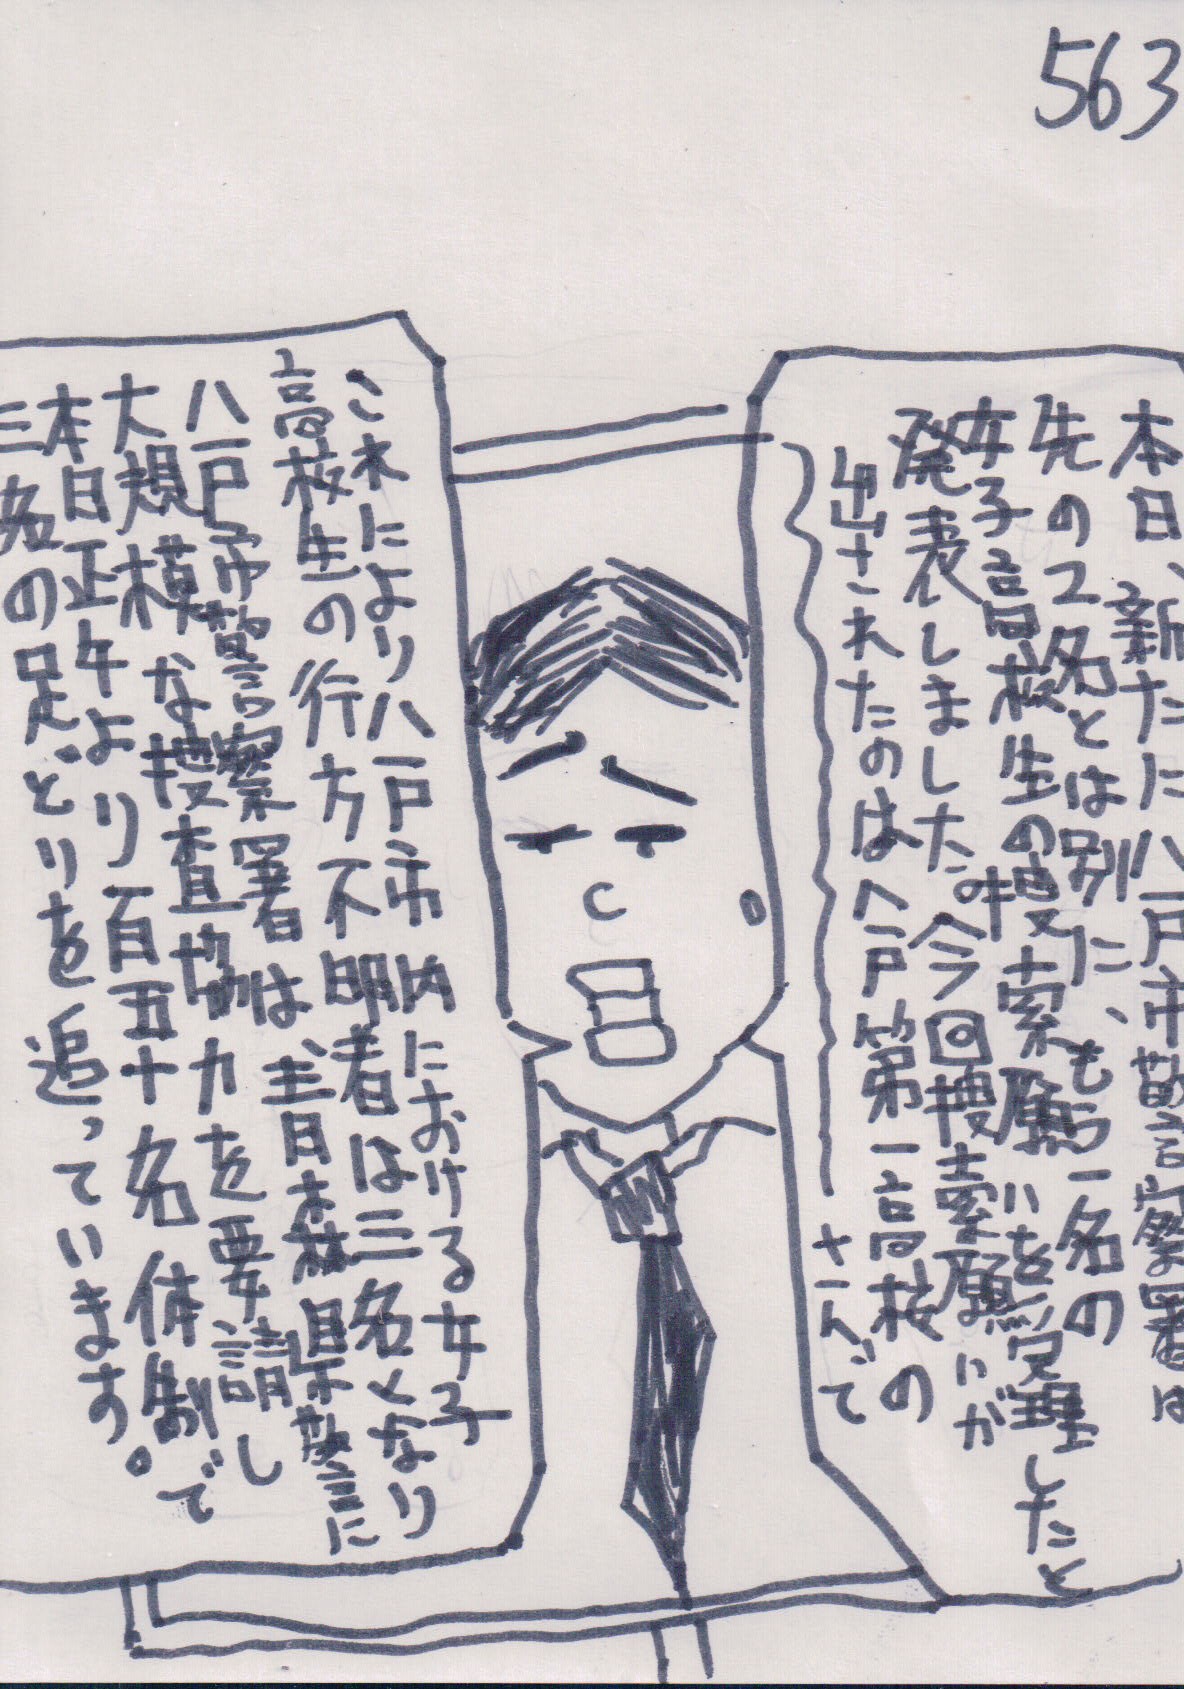 563
本日、新たに八戸市警察署は
先の2名とは別に、もう一名の
女子高校生の捜索願いを受理したと
発表しました。今回捜索願いが
出されたのは八戸第一高校の
さんで
これにより八戸市内における女子
高校生の行方不明者は三名となり
八戸市警察署は、青森県警に
大規模な捜査協力を要請し
本日正午より百五十名体制で
三名の足どりを追っています。